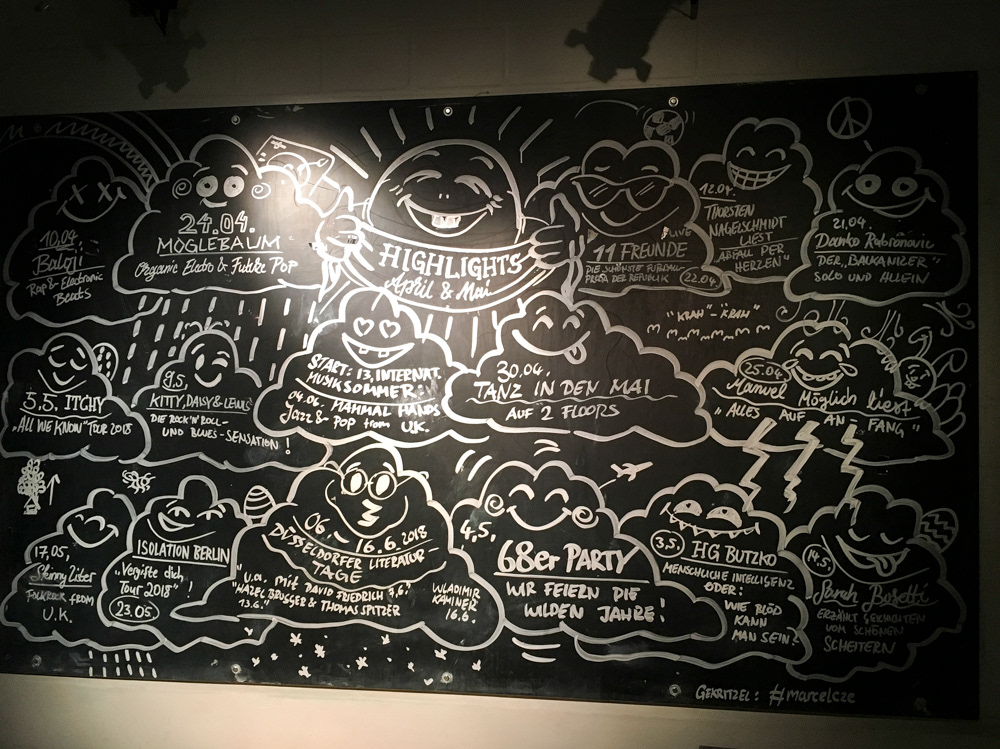 HIGHLIGHTS
April & Mai
10.04.
Balqii
Rap & Electronic
Beats
24.04.
MÖGLEBAUM
Organic Elektro & Future Pop
LIVE
11 FREUNDE
DIE SCHÖNSTE FUSSBALL-
PROSA DER REPUBLIK
22.04.
12.04.
THORSTEN
NAGELSCHMIDT
LIEST
"ABFALL DER
HERZEN"
21.04.
Danko Rabrenovic
DER "BALKANIZER"
SOLO UND ALLEIN
5.5. ITCHY
"ALL WE KNOW" TOUR 2018
9.5.
KITTY, DAISY & LEWIS
DIE ROCK'N'ROLL-
UND BLUES-SENSATION!
START: 13. INTERNAT.
MUSIKSOMMER:
04.06. MAMMAL HANDS
Jazz & Pop from U.K.
30.04.
TANZ IN DEN MAI
AUF 2 FLOORS
"KRAH-KRAH"
25.04.
Manuel Möglich liest
"ALLES AUF AN-
FANG"
17.05.
FOLKROCK FROM
U.K.
ISOLATION BERLIN
"Vergifte dich"
Tour 2018"!
23.05.
06.-16.6.2018
DÜSSELDORFER LITERATUR
TAGE
"u.a. mit DAVID FRIEDRICH 7.6."
"HAZEL BRUGGER & THOMAS SPITZER
13.6."
WLADIMIR
KAMINER
16.6.
4.5.
68er PARTY
WIR FEIERN DIE
WILDEN JAHRE!
3.5.
HG BUTZKO
MENSCHLICHE INTELLIGENZ
ODER:
WIE BLÖD
KANN
MAN SEIN?
14.5.
Sarah Bosetti
ERZÄHLT GESCHICHTEN
VOM SCHÖNEN
SCHEITERN
GEKRITZEL: #marcelcze